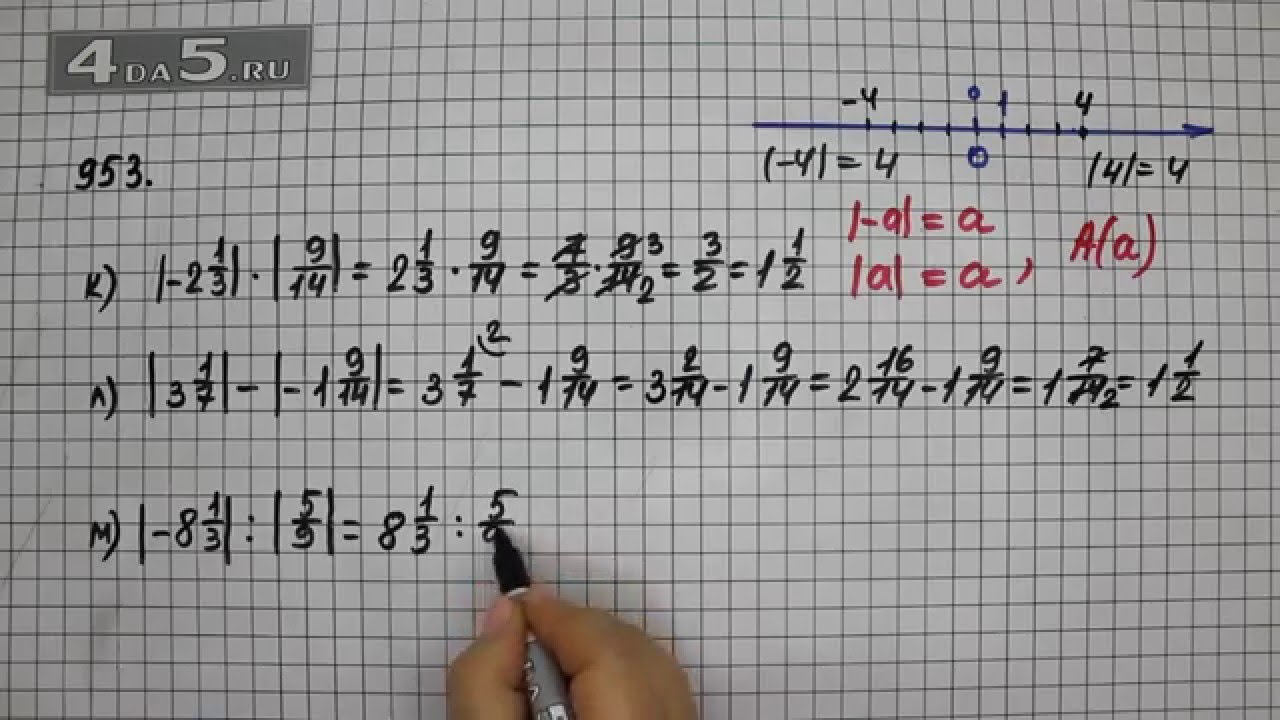 4DA5.RU
-4 0 1 4
|-4| = 4 0 |4| = 4
953.
|-a| = a
|a| = a, A(a)
к) |-2 1/3| · |9/14| = 2 1/3 · 9/14 = 7/3 · 9/14 3 2 = 3/2 = 1 1/2
л) |3 1/7| - |-1 9/14| = 3 1/7 2 - 1 9/14 = 3 2/14 - 1 9/14 = 2 16/14 - 1 9/14 = 1 7/14 2 = 1 1/2
м) |-8 1/3| : |5/9| = 8 1/3 : 5/